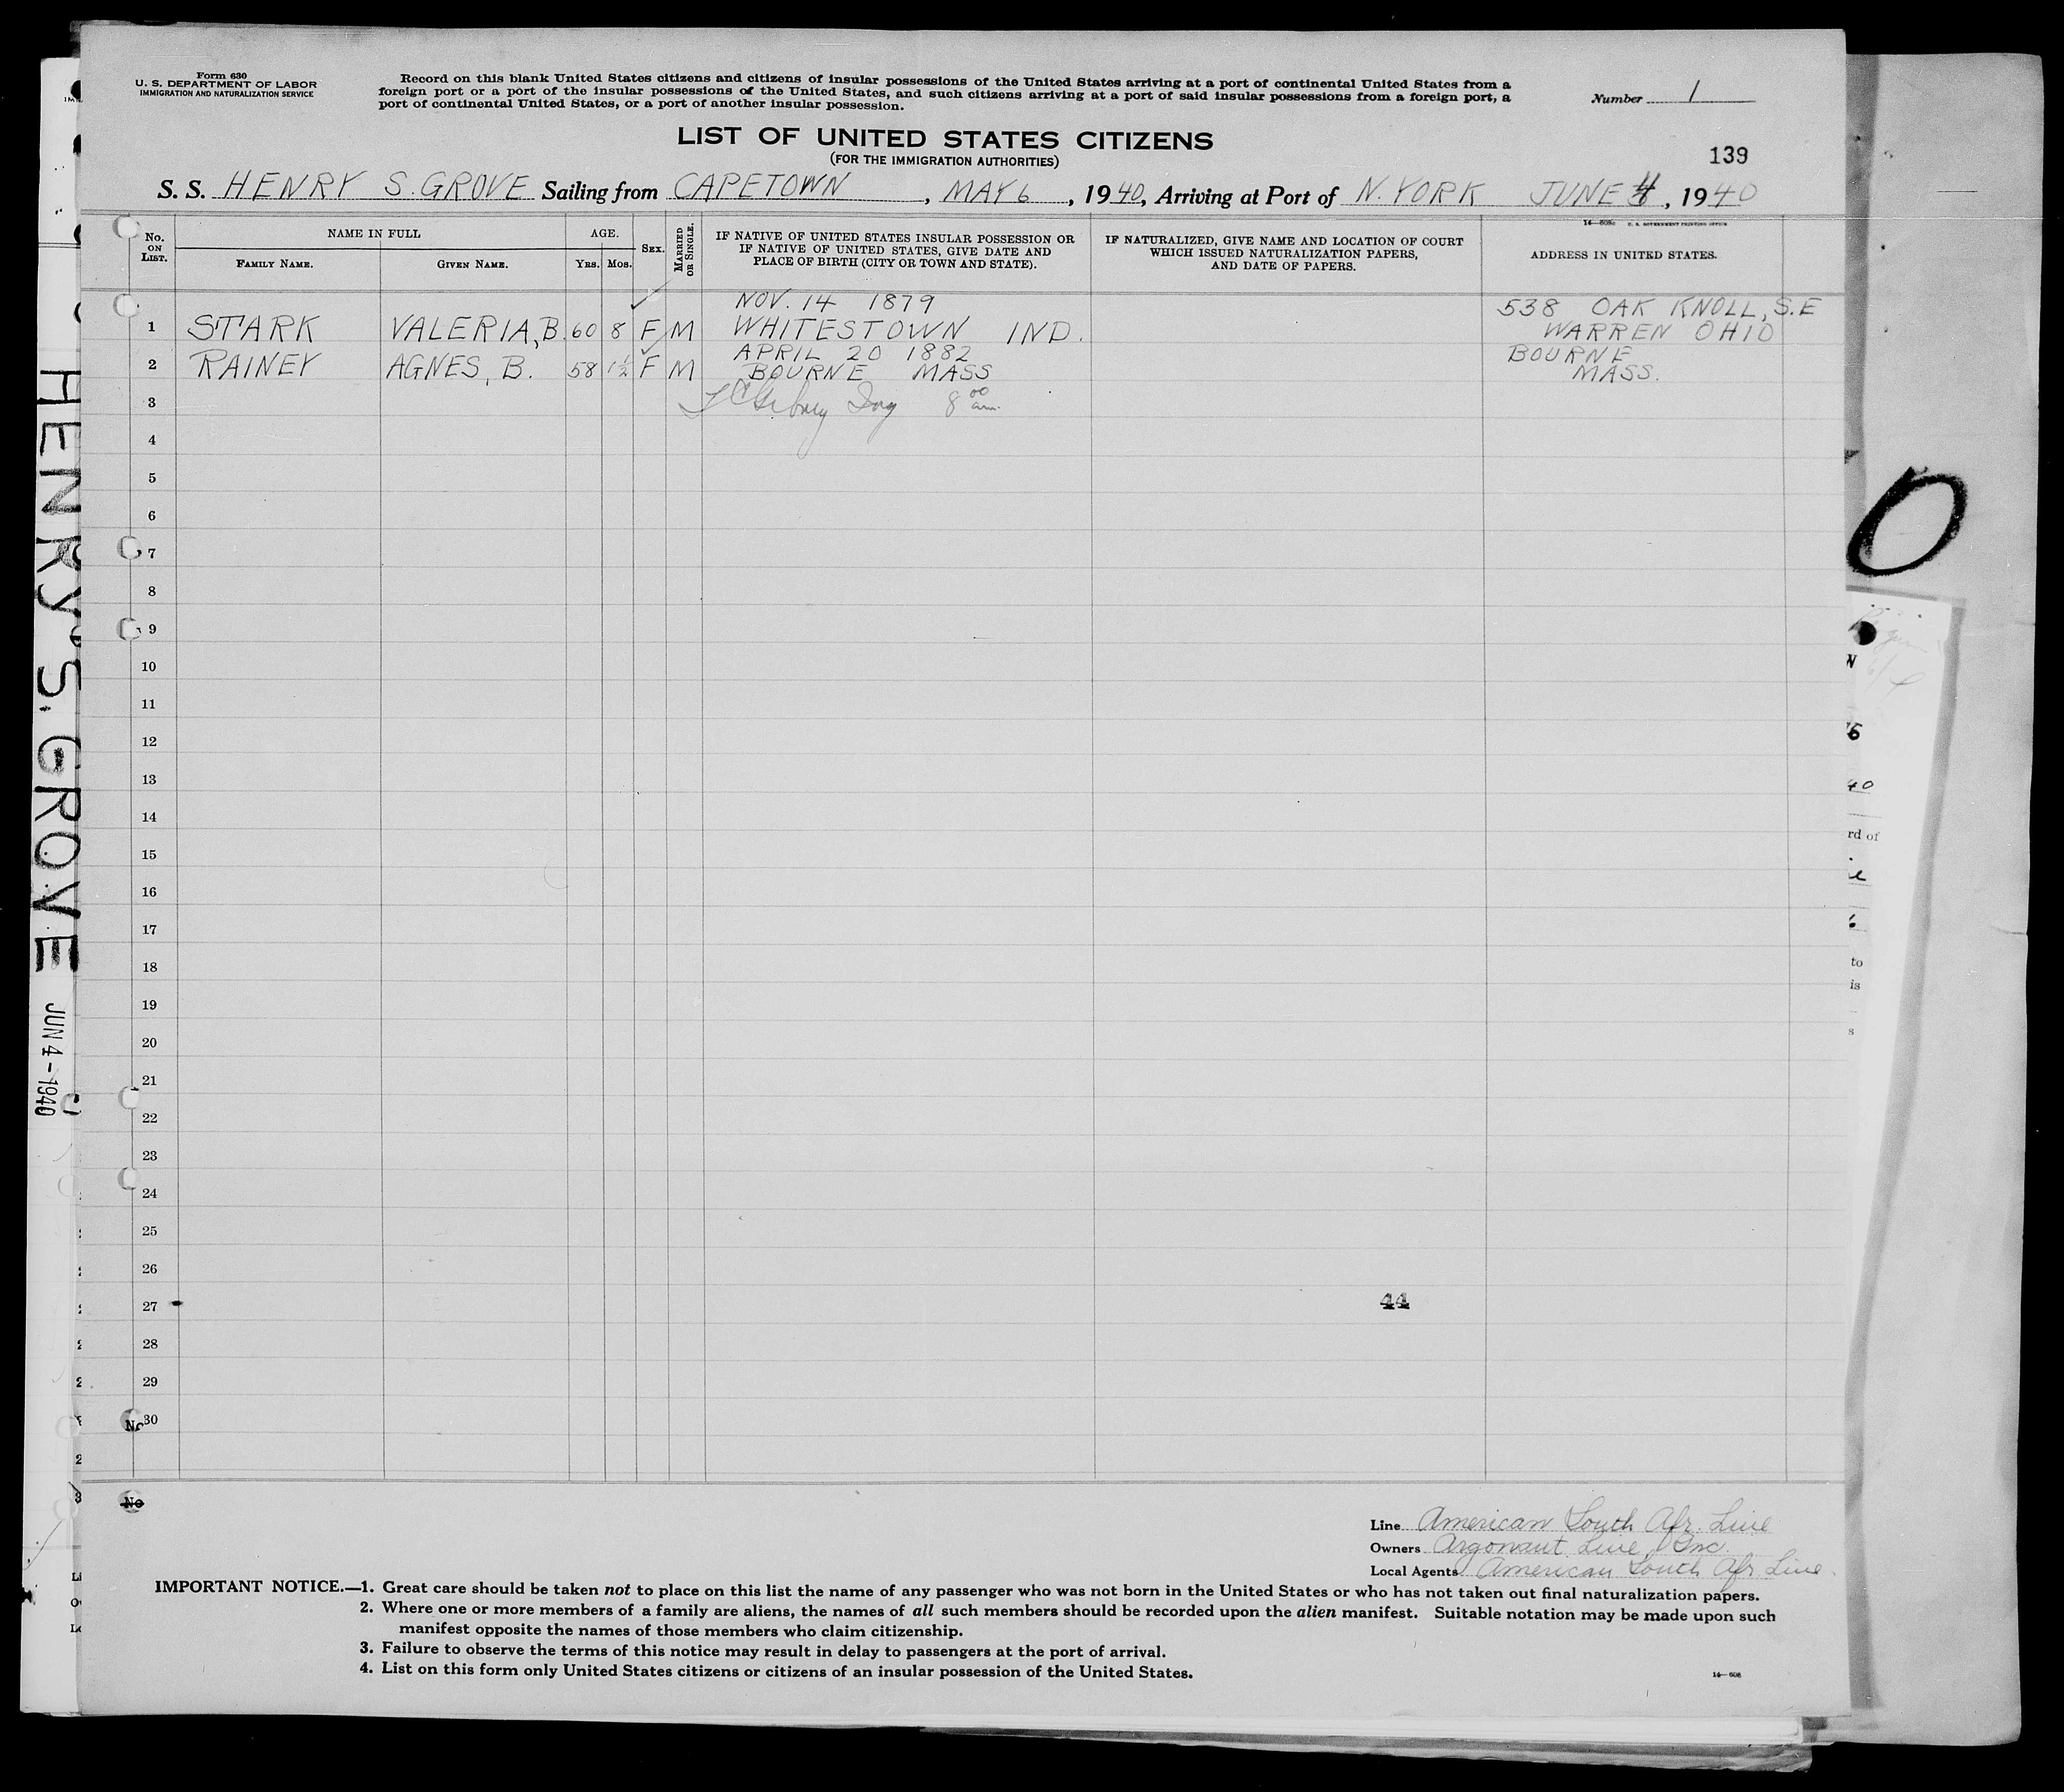 Form 630
U. S. DEPARTMENT OF LABOR
IMMIGRATION AND NATURALIZATION SERVICE
Record on this blank United States citizens and citizens of insular possessions of the United States arriving at a port of continental United States from a
foreign port or a port of the insular possessions of the United States, and such citizens arriving at a port of said insular possessions from a foreign port, a
port of continental United States, or a port of another insular possession.
Number 1
LIST OF UNITED STATES CITIZENS
(FOR THE IMMIGRATION AUTHORITIES)
139
S. S. HENRY S. GROVE Sailing from CAPETOWN, MAY 6, 1940, Arriving at Port of N. YORK JUNE 4, 1940
No. ON LIST.
NAME IN FULL
FAMILY NAME. GIVEN NAME.
AGE.
YRS. MOS.
SEX.
MARRIED OR SINGLE.
IF NATIVE OF UNITED STATES INSULAR POSSESSION OR
IF NATIVE OF UNITED STATES, GIVE DATE AND
PLACE OF BIRTH (CITY OR TOWN AND STATE).
IF NATURALIZED, GIVE NAME AND LOCATION OF COURT
WHICH ISSUED NATURALIZATION PAPERS,
AND DATE OF PAPERS.
U. S. GOVERNMENT PRINTING OFFICE
ADDRESS IN UNITED STATES.
NOV. 14 1879 538 OAK KNOLL, S.E
1 STARK VALERIA, B. 60 8 F M WHITESTOWN IND. WARREN OHIO
APRIL 20 1882 BOURNE
2 RAINEY AGNES, B. 58 1½ F M BOURNE MASS MASS.
3 8 00 am.
4
5
6
7
8
9
10
11
12
13
14
15
16
17
18
19
20
21
22
23
24
25
26
27 44
28
29
30
No
Line American South Afr. Line
Owners Argonaut Line, Inc.
Local Agents American South Afr. Line.
IMPORTANT NOTICE.—1. Great care should be taken not to place on this list the name of any passenger who was not born in the United States or who has not taken out final naturalization papers.
2. Where one or more members of a family are aliens, the names of all such members should be recorded upon the alien manifest. Suitable notation may be made upon such
manifest opposite the names of those members who claim citizenship.
3. Failure to observe the terms of this notice may result in delay to passengers at the port of arrival.
4. List on this form only United States citizens or citizens of an insular possession of the United States.
14—608
HENRY S. GROVE JUN 4-1940
rd of
to
is
s